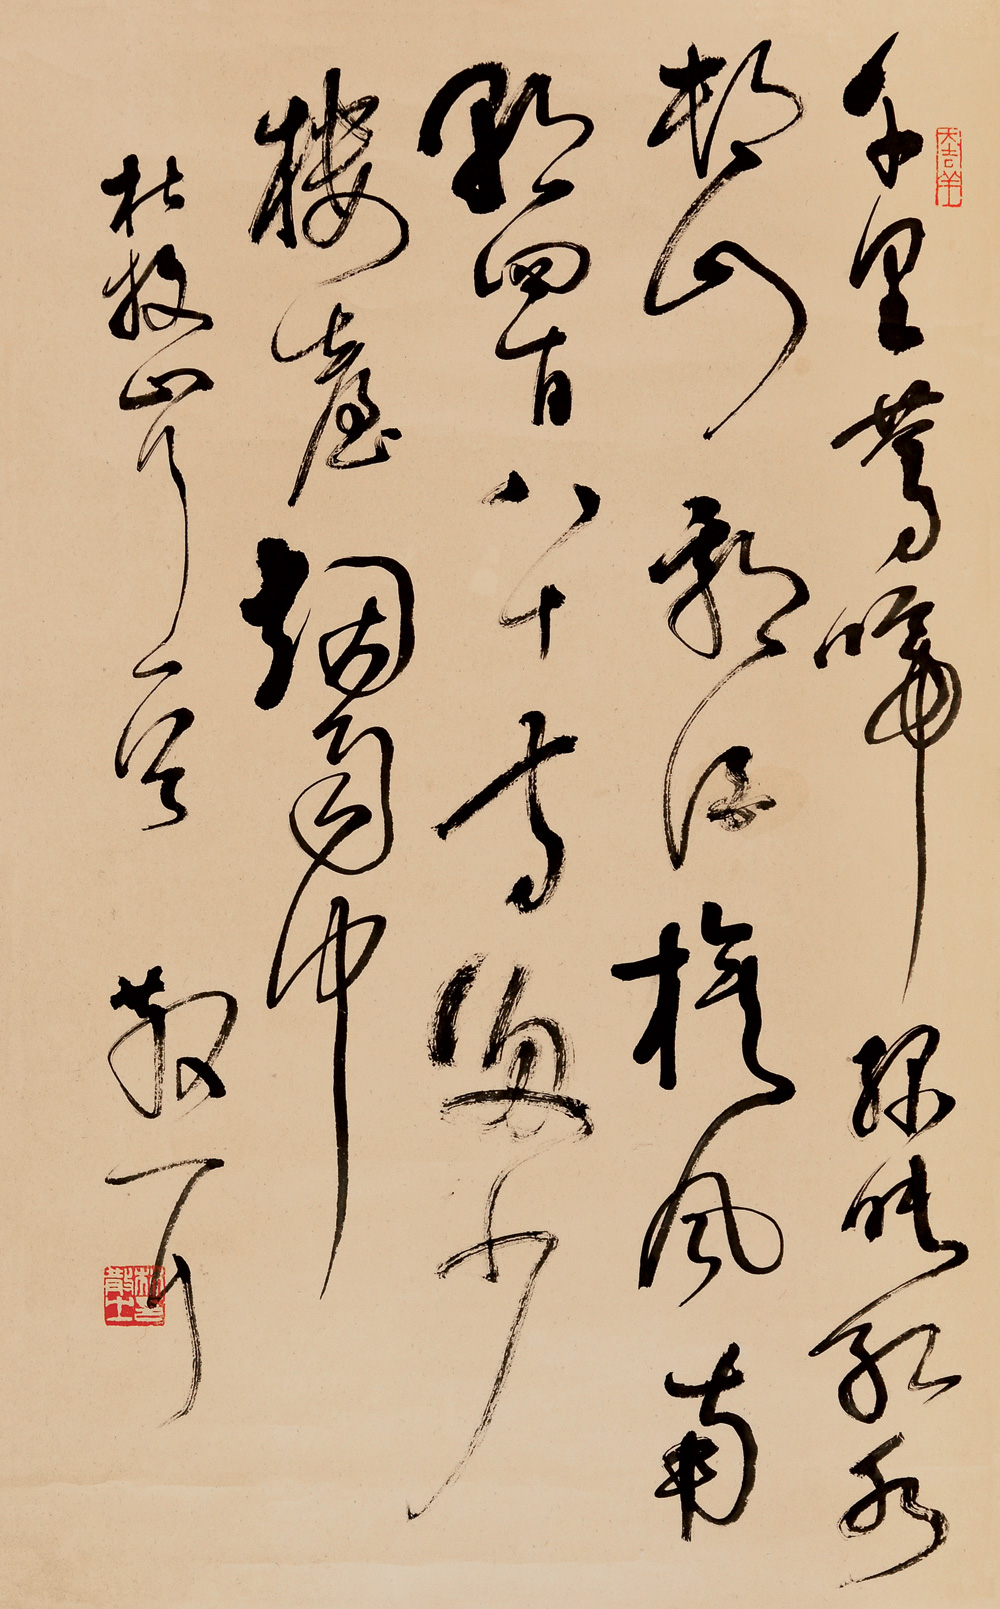 千里鶯啼綠映紅水
村山郭酒旗風南
朝四百八十寺多少
樓臺烟雨中
杜牧山行一首 散耳
大吉羊